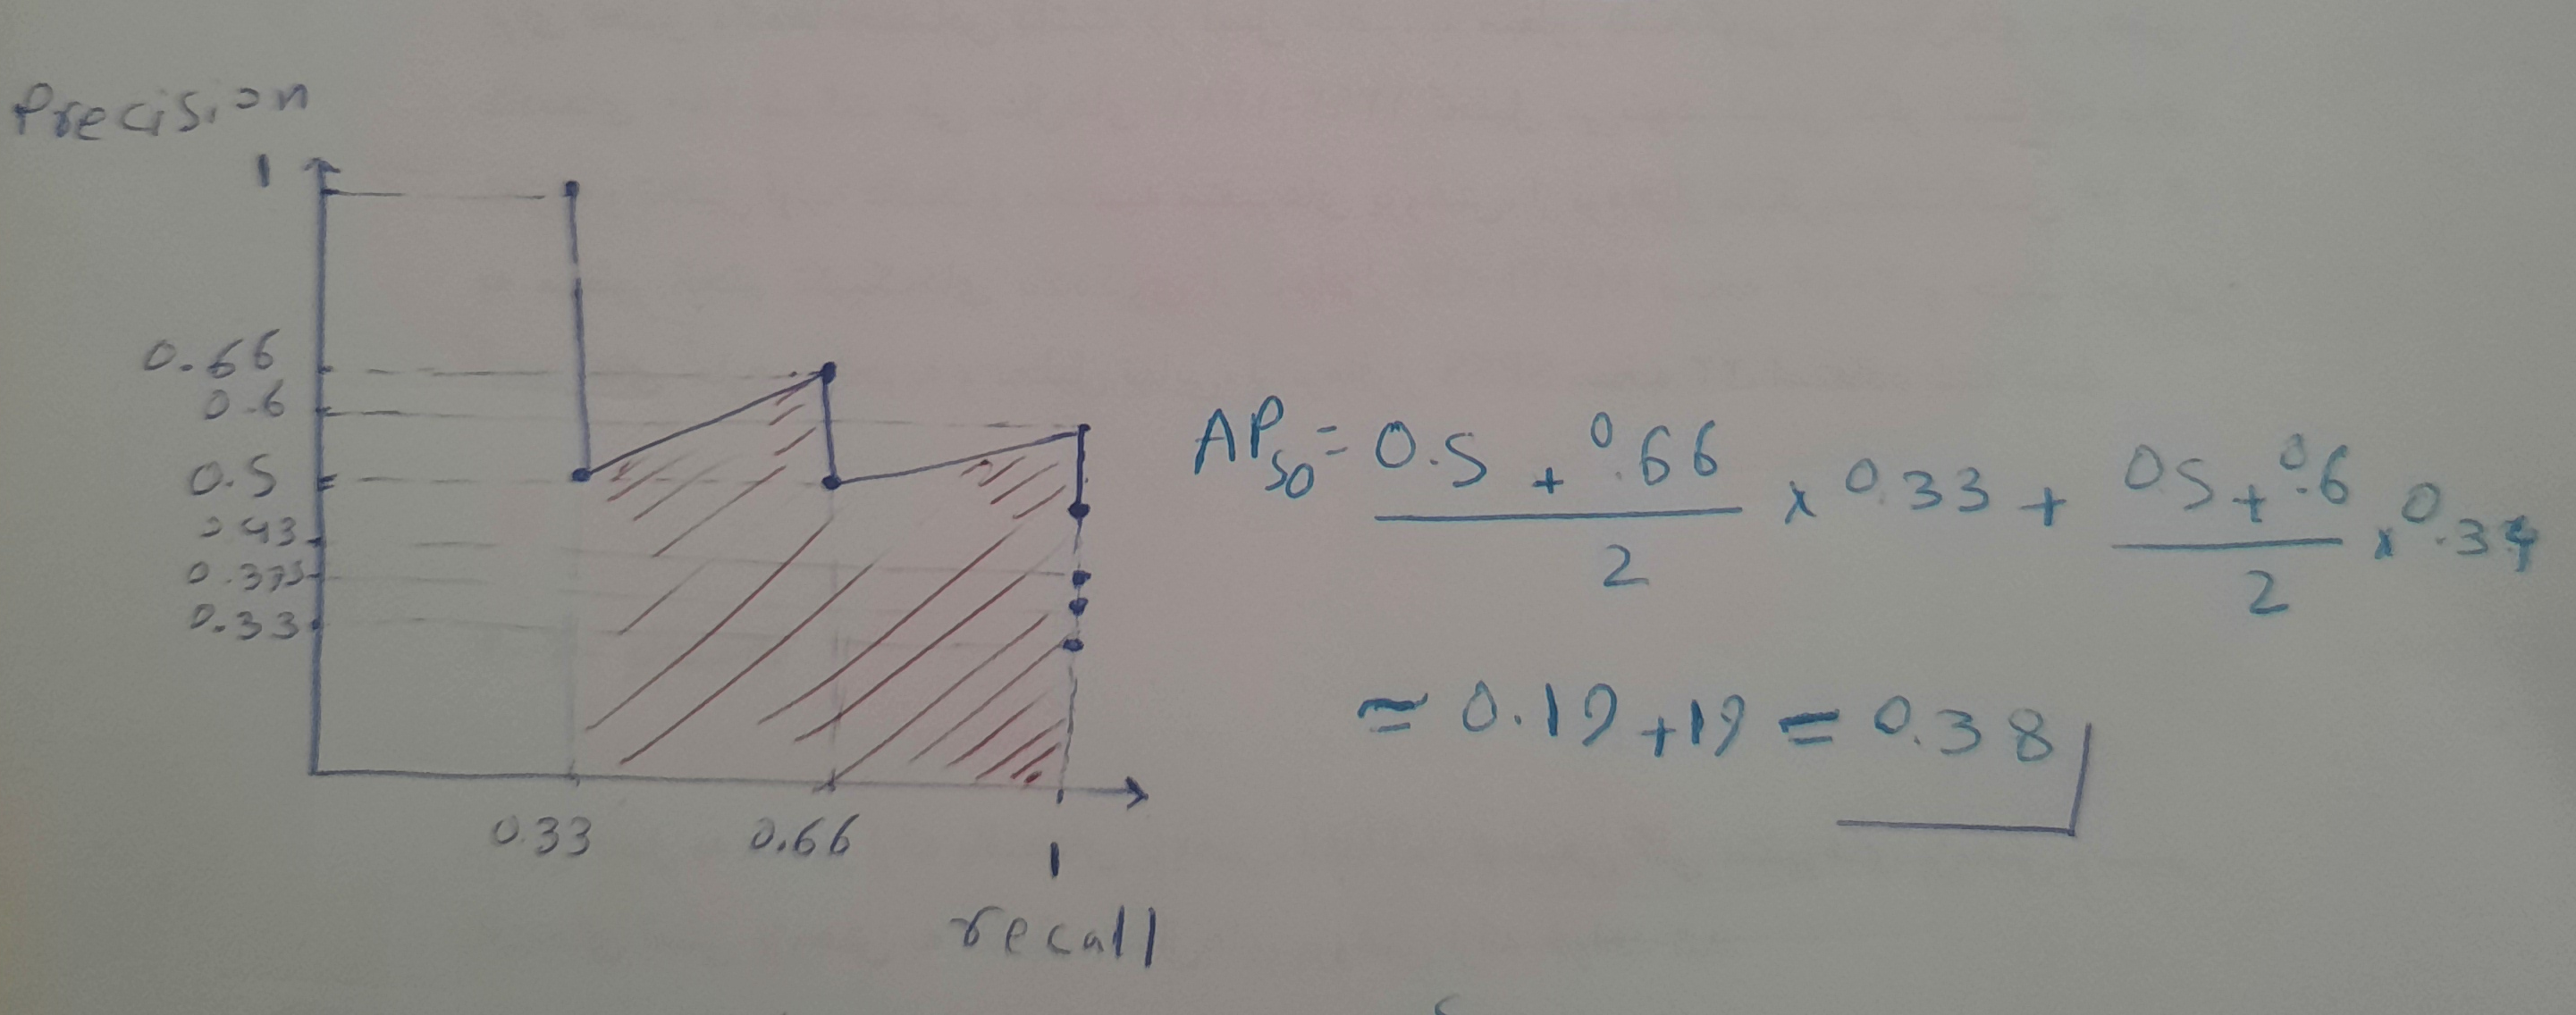 Precision
1
0.66
0.6
0.5
0.43
0.375
0.33
0.33 0.66 1
recall
AP50 = (0.5 + 0.66)/2 x 0.33 + (0.5 + 0.6)/2 x 0.34
≃ 0.19 + 19 = 0.38